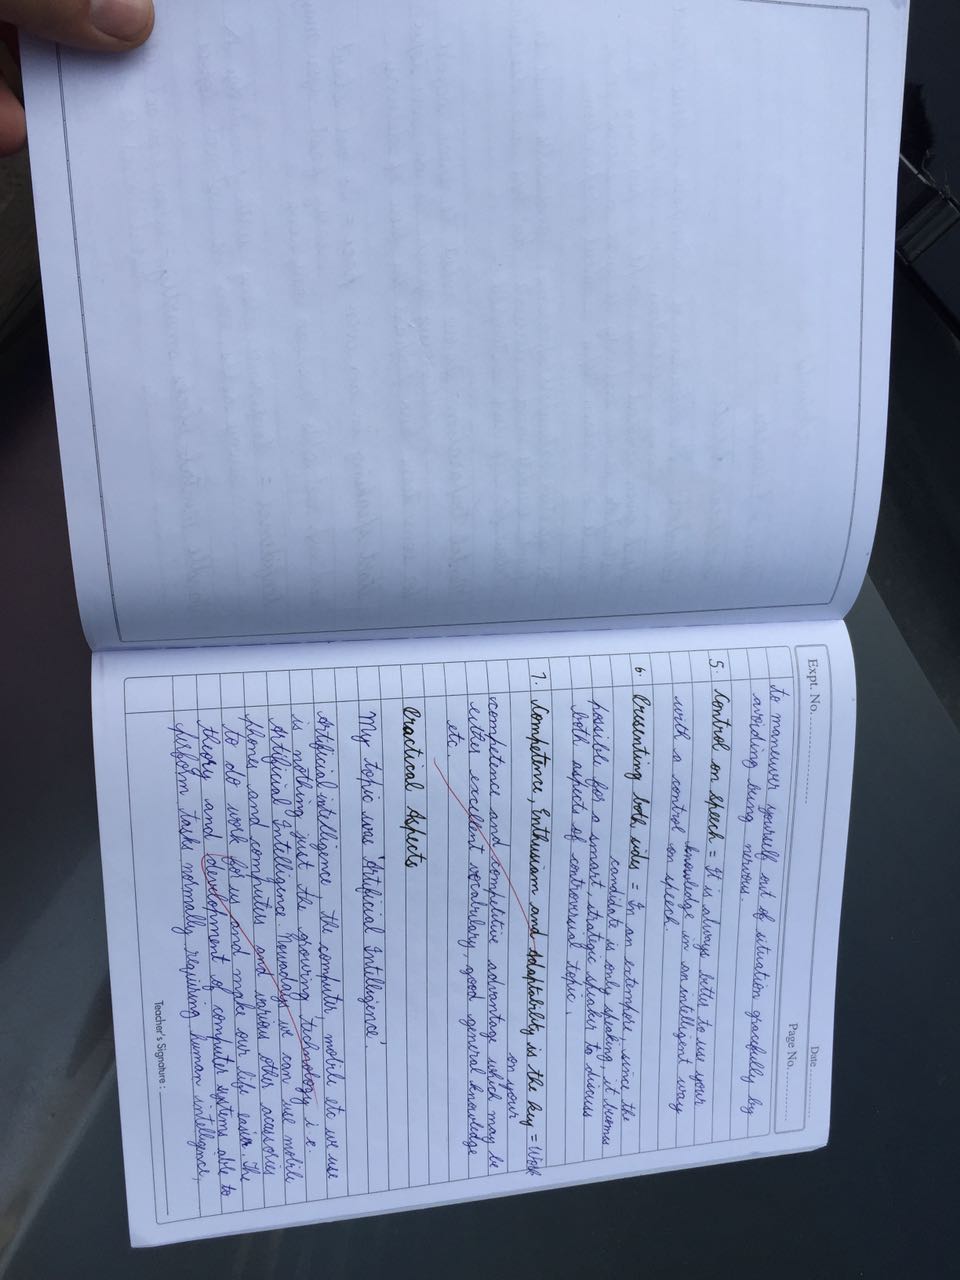 Expt. No.
Date
Page No.
to maneuver yourself out of situation gracefully by
avoiding being nervous.
5. Control on speech = It is always better to use your
knowledge in an intelligent way
with a control on speech.
6. Presenting both sides = In an extempore, since the
candidate is only speaking, it becomes
possible for a smart, strategic speaker to discuss
both aspects of controversial topic.
7. Competence, Enthusiam and Adaptability is the key = Work
on your
competence and competitive advantage which may be
either excellent vocabulary, good general knowledge
etc.
Practical Aspects
My topic was 'Artificial Intelligence'.
Artificial intelligence, the computer, mobile etc we use
is nothing just the growing technology i.e.
Artificial Intelligence. Nowadays we can use mobile
phones and computers and various other accessories
to do work for us and make our life easier. The
theory and development of computer systems able to
perform tasks normally requiring human intelligence,
Teacher's Signature :